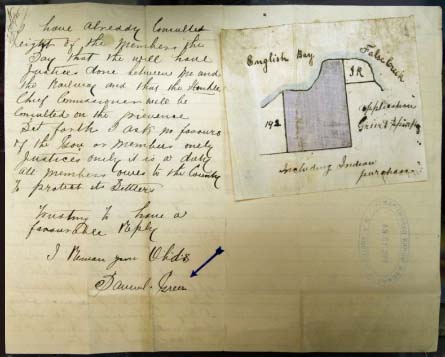 I have Already Consulted
Height of the Members the
Say that the will have
Justices done between me and
the Railway and that the Honble
Chief Commissioner will be
Consulted on the
Set forth I ask no favours
of the Gov or Members only
Justices only it is a duty
all Members owes to the County
To protect its Settlers
Trusting to have a
favourable Reply
I Remain your Obdt
Samuel Greer
English Bay
False Creek
I R
192
application
Greer's
Including Indian
purchase